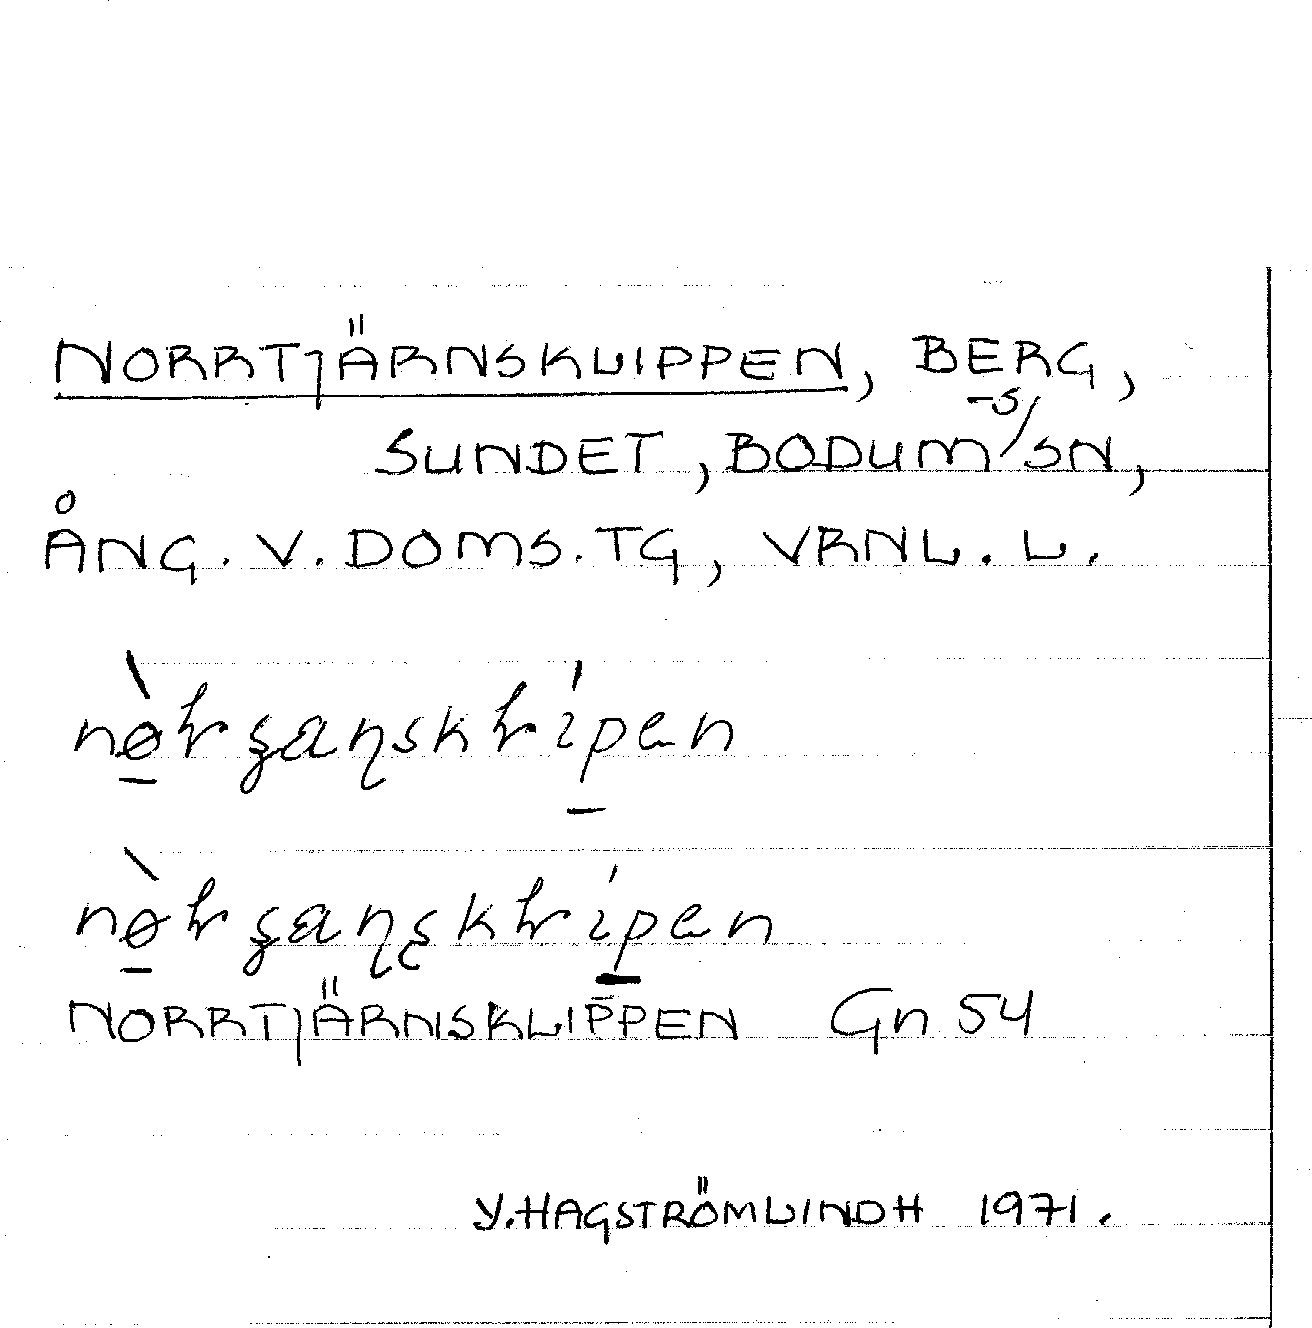 NORRTJÄRNSKLIPPEN, BERG,
SUNDET, BODUM-S/SN,
ÅNG. V. DOMS. TG, VRNL. L.
NORRTJÄRNSKLIPPEN Gn 54
Y. HAGSTRÖMLINDH 1971.